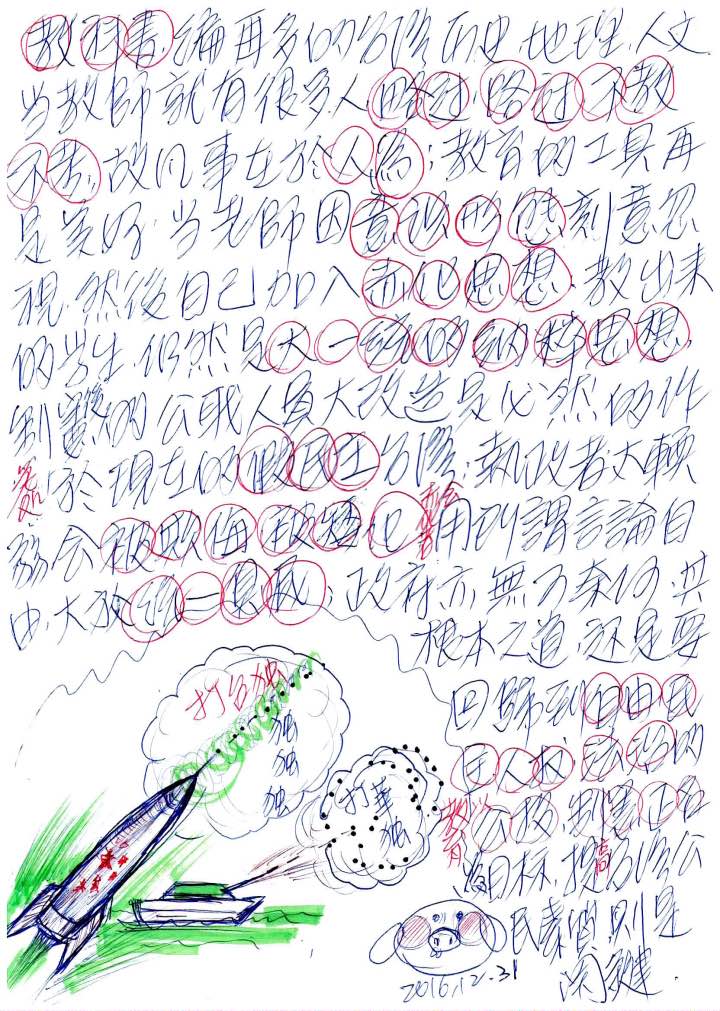 教科書編再多的台灣历史、地理、人文
当教師就有很多人略过、略过、不教
不考,故凡事在於人為;教育的工具再
是美好,当老師因意识形態刻意忽
視,然後自己加入赤化思想,教出来
的学生,仍然是大一統的納粹思想,
制憲後的公职人員大改造是必然的作
於現在的假民主台灣;執政者太軟
弱会被欺侮、放任也用到謂言論自
由,大放統一臭屁;政府亦無可奈何,其
根本之道,还是要
回歸到自由民
主人权、法治的
教育以公投、制憲、正名
為目标,提高台灣公
民素質,則是
關鍵.
打台独
独
独
独
打華
独
2016.12.31